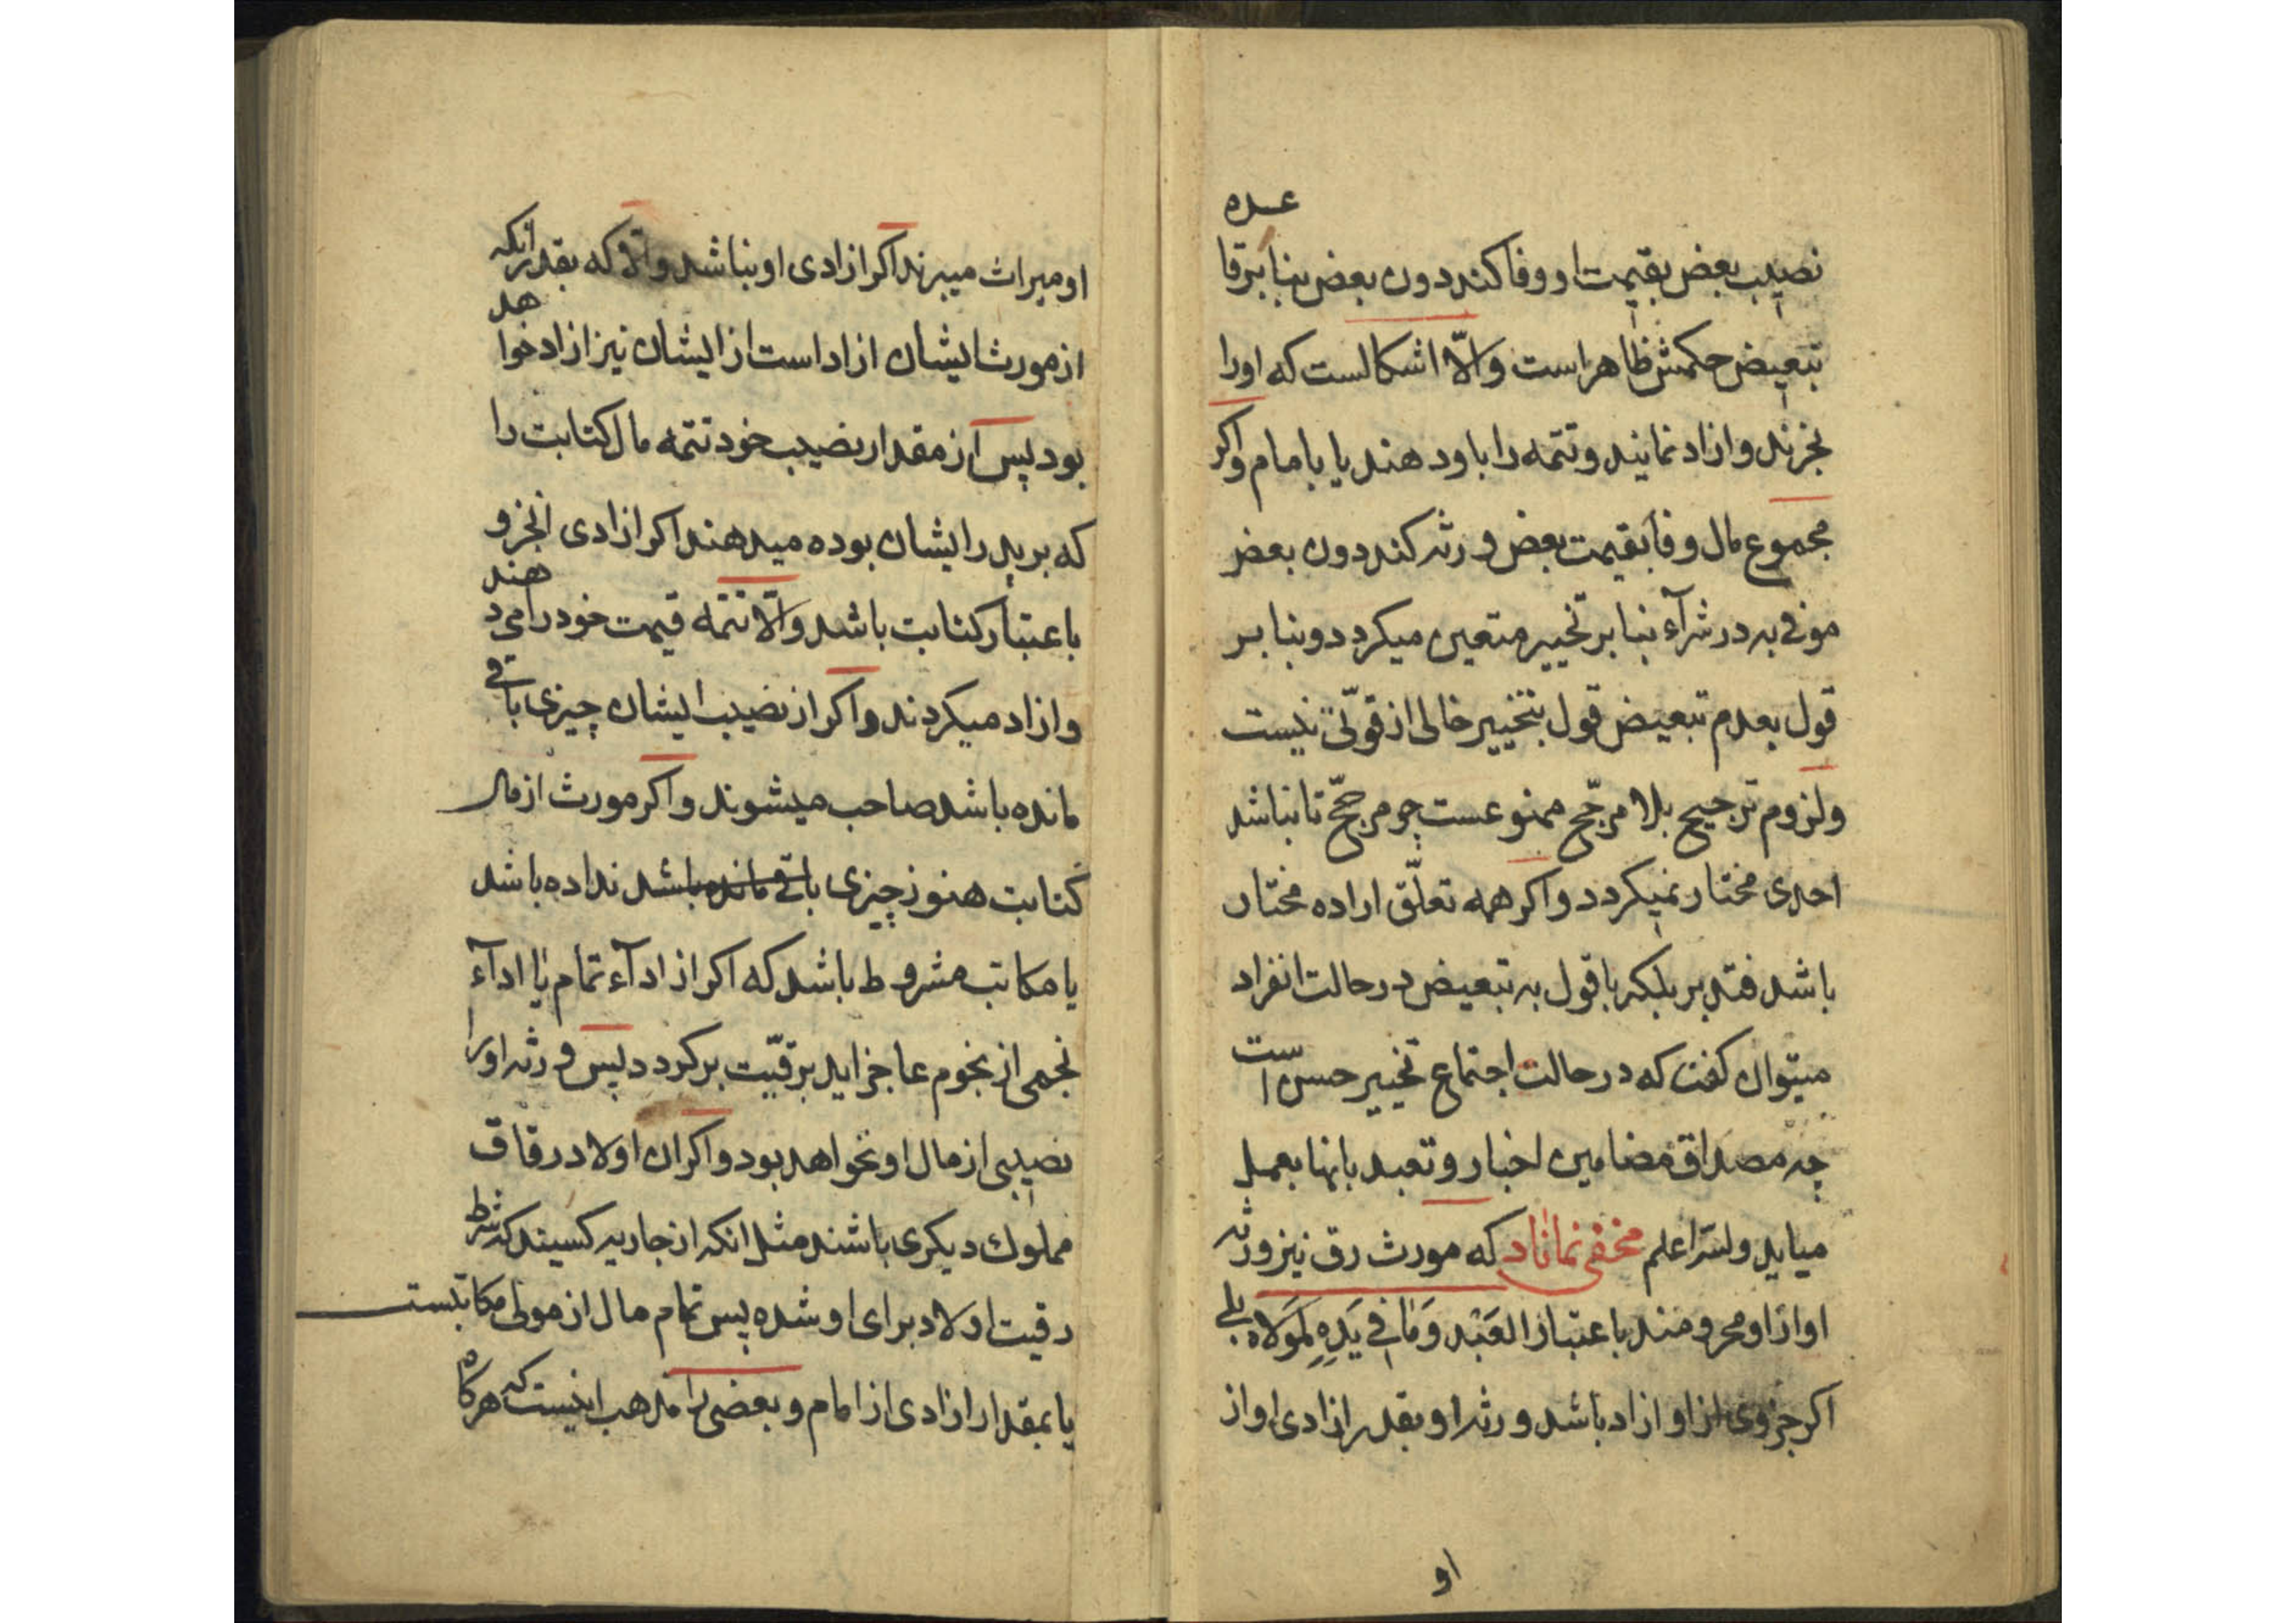 نصیب بعض بقیمت او وفا کند دون بعض بنا بر قا
عده
تبعیض حکمش ظاهر است والّا اشکالست که او را
بخرند و ازاد نمایند و تتمه را باو دهند یا بامام واکر
مجموع مال وفا بقیمت بعض ورثه کند دون بعض
موفی به در شرآء بنا بر تخییر متعین میکردد و بنا بر
قول بعدم تبعیض قول بتخییر خالی از قوّتی نیست
ولزوم ترجیح بلا مرجّح ممنوعست چو مرجّح تا نباشد
احدی مختار نمیکردد واکر همه تعلّق اراده مختار
باشد فتدبر بلکه با قول به تبعیض در حالت انفراد
میتوان کفت که در حالت اجتماع تخییر حسن است
چه مصداق مضامین اخبار و تعبد بانها بعمل
میاید والله اعلم مخفی نماناد که مورث رق نیز ورثه
او از او محرومند باعتبار العَبْد وَمٰا فی یَدِهِ لِمَولاه بلی
اکر جزوی از او ازاد باشد ورثه او بقدر ازادی او از
او
او میراث میبرند اکر ازادی او بنا شد والّا که بقدر انکه
از مورث ایشان ازاد است از ایشان نیز ازاد خوا
هد
بود پس از مقدار نصیب خود تتمه مال کتابت را
که بر پدر ایشان بوده میدهند اکر ازادی انجزو
باعتبار کتابت باشد والّا تتمّه قیمت خود را می د
هند
وازاد میکردند واکر از نصیب ایشان چیزی باقی
مانده باشد صاحب میشوند واکر مورث از مال
کتابت هنوز چیزی باقی مانده باشد نداده باشد
یا مکاتب مشروط باشد که اکر از ادآء تمام یا ادآء
نجمی از نجوم عاجز اید برقیّت برکردد پس ورثه او را
نصیبی از مال او نخواهد بود واکر ان اولاد رقاق
مملوك دیکری باشند مثل انکه از جاریه کسیند که شرط
رقیت اولاد برای او شده پس تمام مال از مولی مکاتبست
یا بمقدار ازادی از امام و بعضی را مذهب اینست که هرکاه